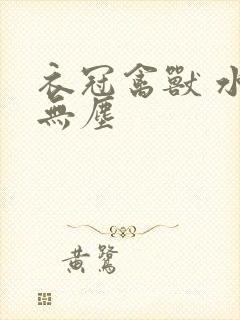 衣冠禽獸 水
無塵
黄鷺